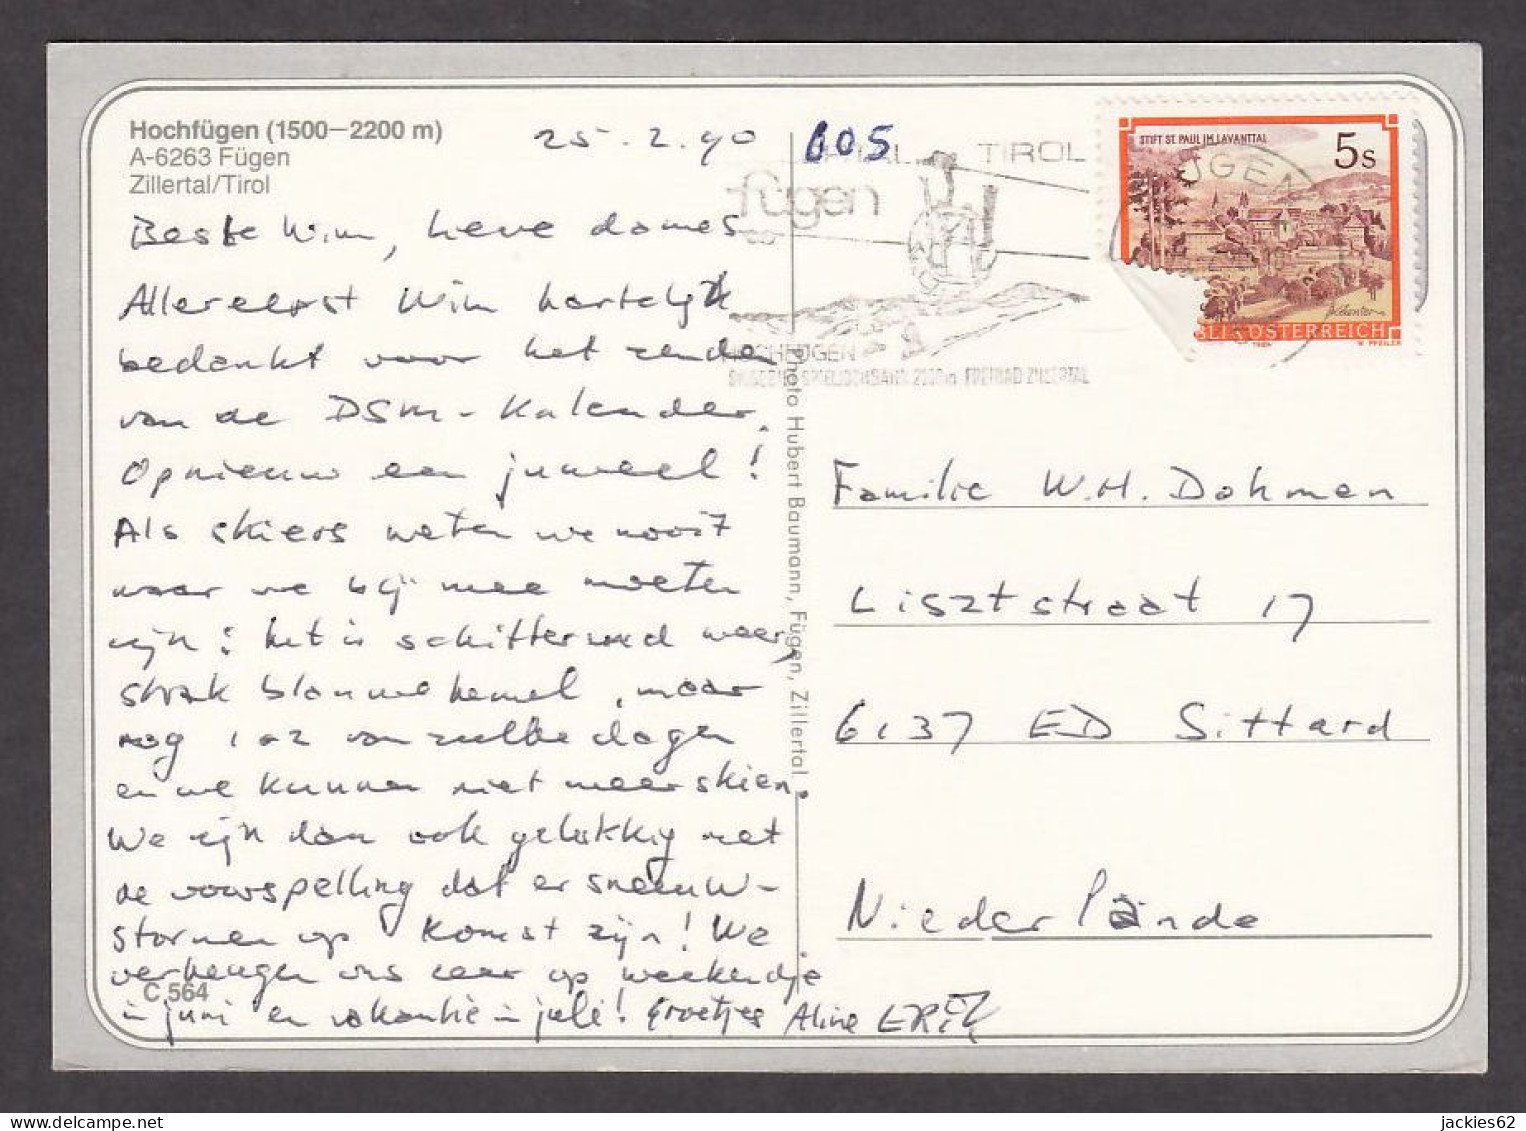 Hochfügen (1500–2200 m)
A-6263 Fügen
Zillertal/Tirol
25.2.90
Beste Wim, lieve dames
Allereerst Wim hartelijk
bedankt voor het zenden
van de DSM-Kalender.
Opnieuw een juweel!
Als skiers weten we nooit
waar we blij mee moeten
zijn: het is schitterend weer,
strak blauwe hemel, maar
nog 1 a 2 van zulke dagen
en we kunnen niet meer skien.
We zijn dan ook gelukkig met
de voorspelling dat er sneeuw-
stormen op komst zijn! We
verheugen ons zeer op weekendje
in juni en vakantie in juli! Groetjes Aline ERIK
C 564
Photo Hubert Baumann, Fügen, Zillertal.
605
TIROL
fügen
HOCHFÜGEN
2000m FREIBAD ZILLERTAL
STIFT ST. PAUL IM LAVANTTAL
5s
ÜGEN
BLIK ÖSTERREICH
1985
W. PFEILER
Familie W.H. Dohmen
Lisztstraat 17
6137 ED Sittard
Niederlände
delcampe.net
jackies62